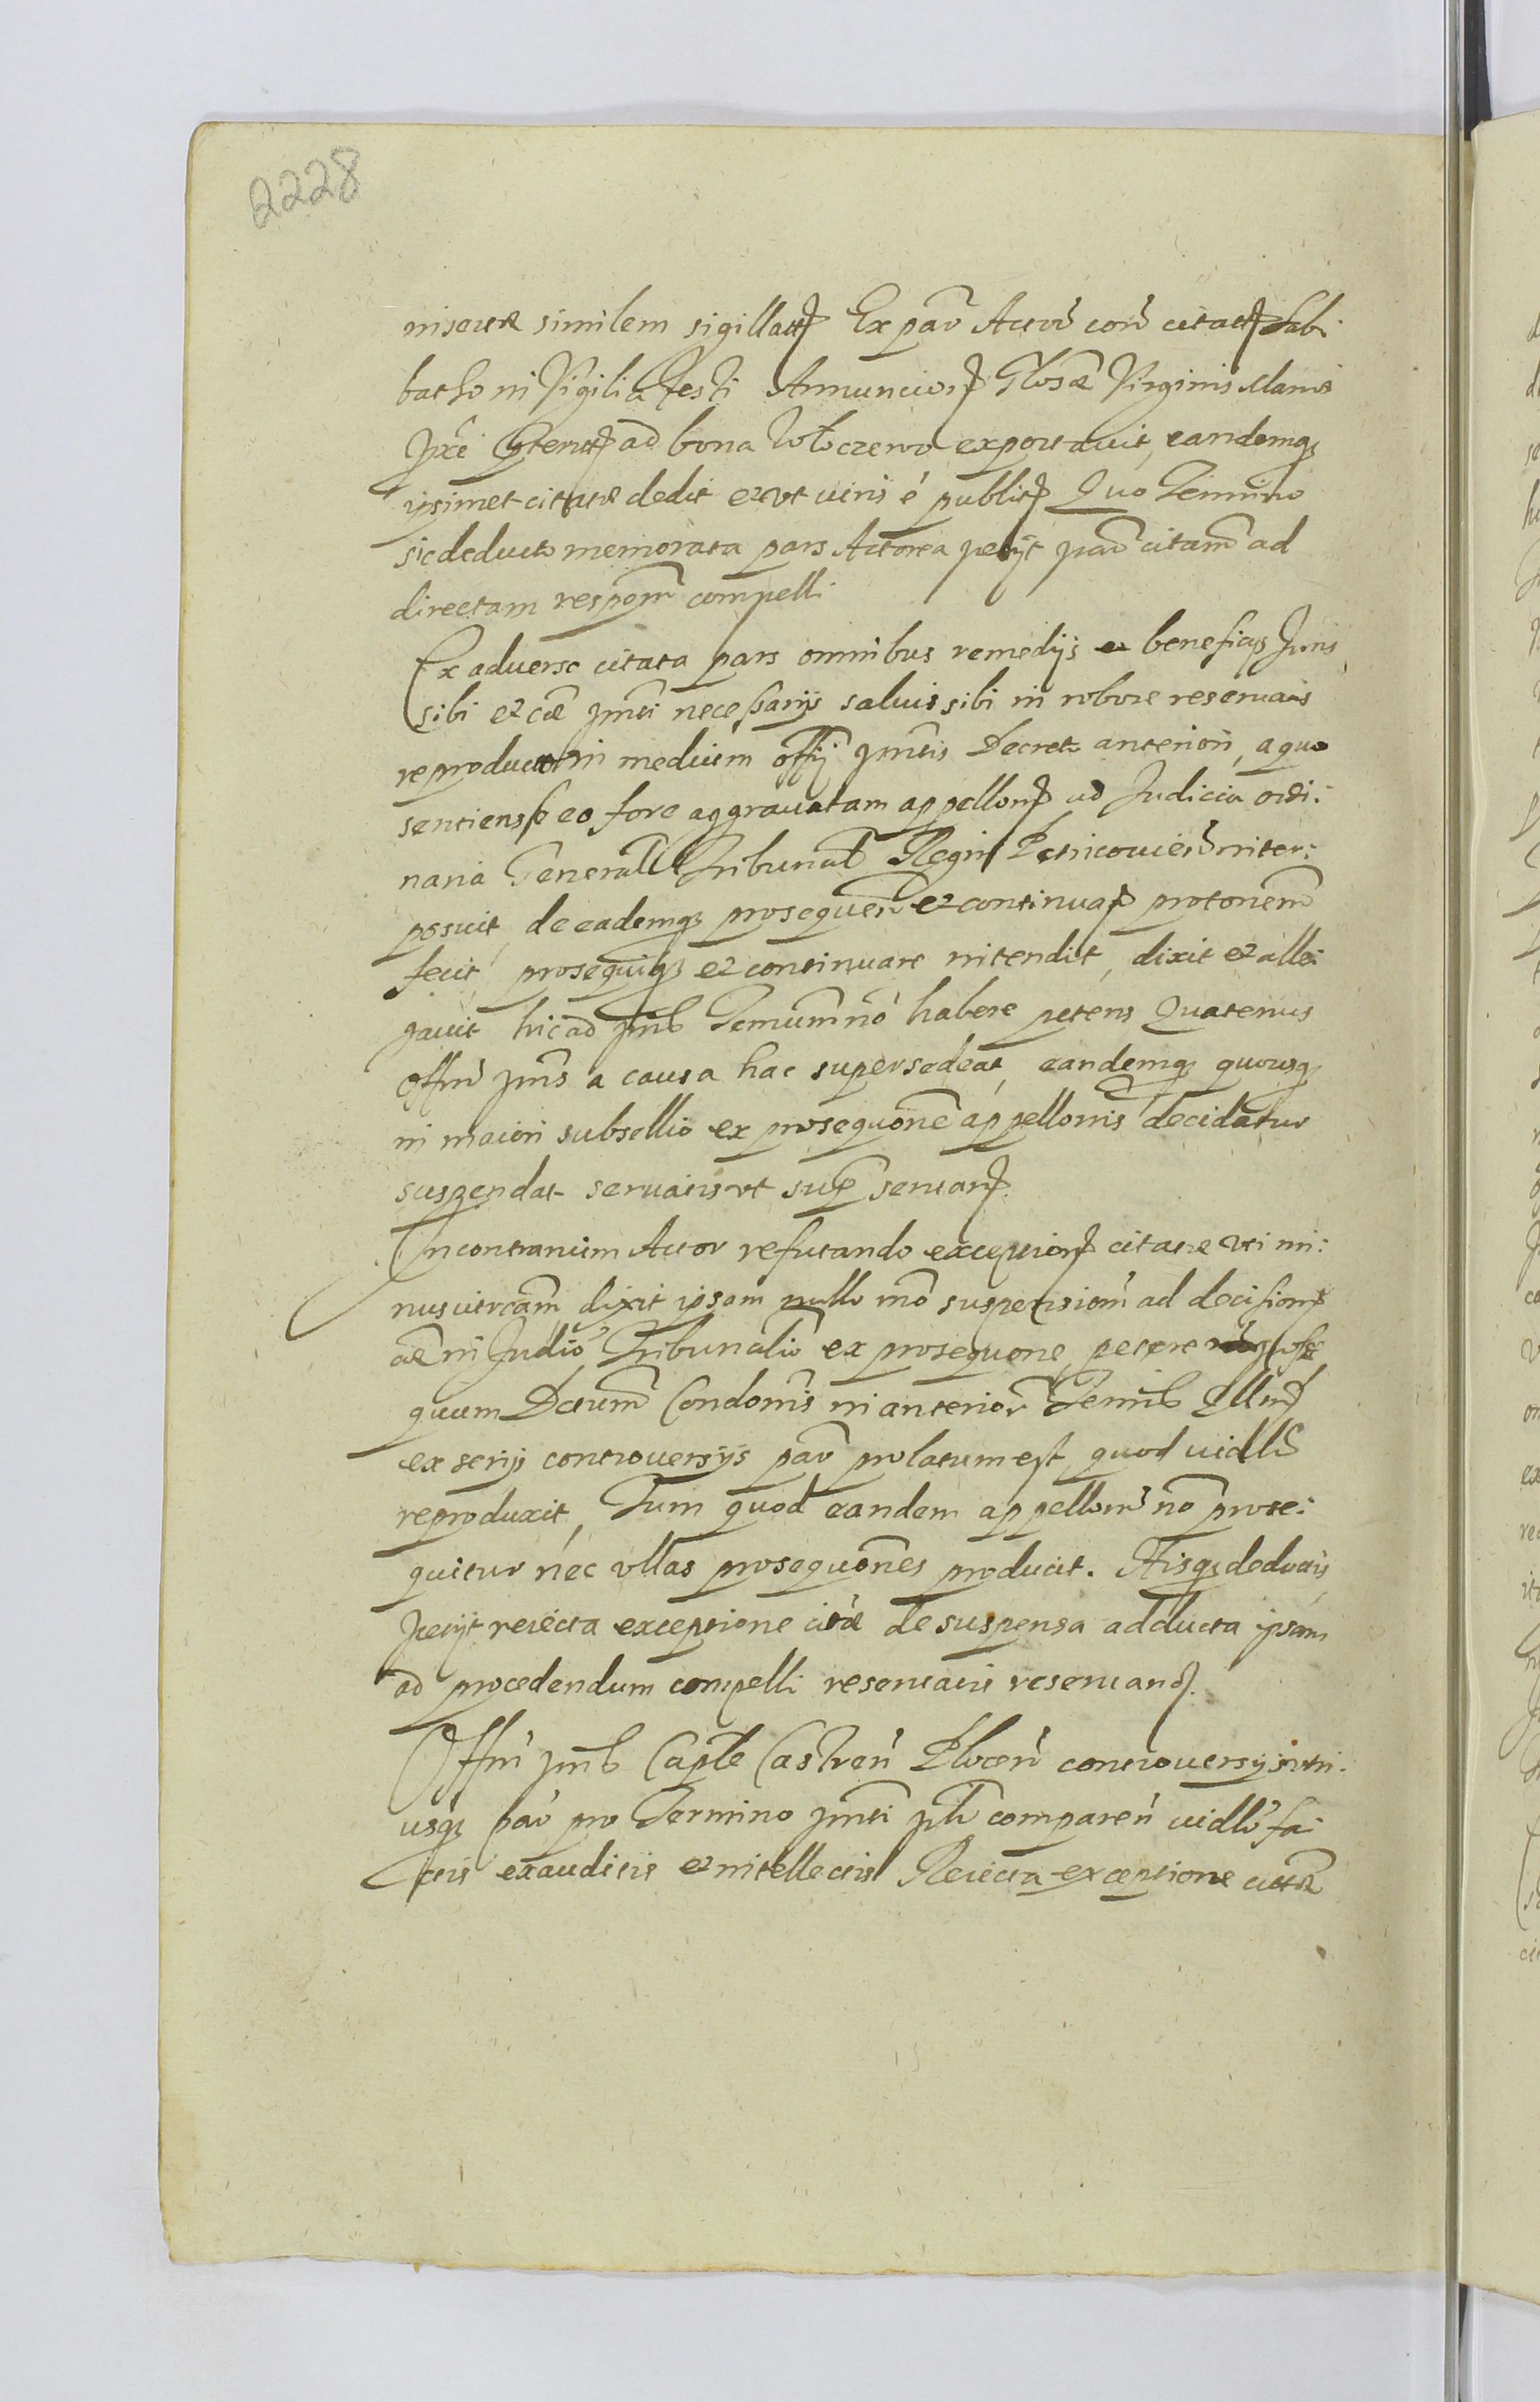 2228
similem sigillat Ex par Actor con citat Sab:
batho in Vigilia festi Annuncion Glosæ Virginis Mariæ
ad bona exportavit, eandemq
ipsimet citatæ dedit et ut viris é public Quo Termino
sic deducto memorata pars Actorea petijt par citam ad
directam responm compelli
Ex adverso citata pars omnibus remedijs et beneficijs Juris
sibi et cæ pnti necessarijs salvis sibi in robore reservatis
reproducto in medium offij pntis Decreto anteriori, a quo
sentiens se eo fore aggravatam appellon ad Judicia ordi:
naria Generalis Tribunal Regni Petricovien inter:
posuit, de eademq prosequen et continuan proton̄em
fecit, prosequiq et continuare intendit, dixit et alle:
gavit hic ad pns Terminum nō habere petens Quatenus
Offm pns a causa hac supersedeat, eandemq quousq
in maiori subsellio ex prosequone appellonis decidatur
suspendat servatis ut supr servan
In contrarium Actor refutando exception citatæ uti mi:
nus dixit ipsam nullo mō suspensiom ad decision
cæ in Judio Tribunalio ex prosequone petere posse
quum Dctum Condonis in anterior Termis
ex serijs controversijs par prolatum est, quod vidlt
reproduxit, Tum quod eandem appellom nō prose:
quitur nec ullas prosequones producit. Hisq deductis
petijt reiecta exceptione citæ de suspensa adducta ipsam
ad procedendum compelli reservatis reservan
Offm pns Caple Castren Plocen controversijs utri:
usq par pro Termino pnti plr comparen vidlt fa:
ctis exauditis et intellectis Reiecta exceptione citatæ